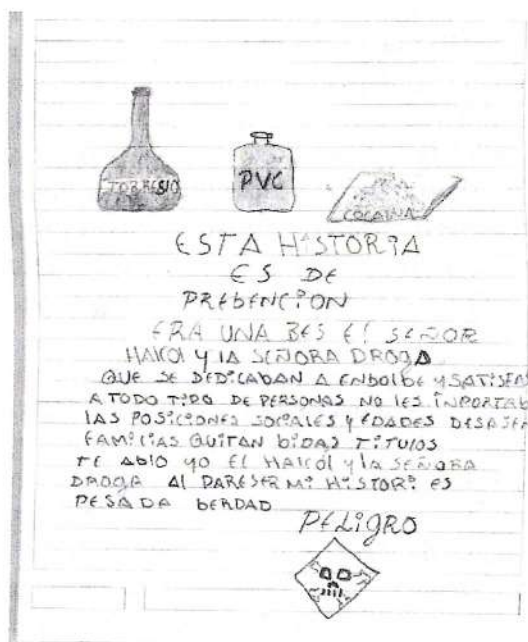 TORRESIO
PVC
COCAINA
ESTA HISTORIA
ES DE
PREBENCION
ERA UNA BES El SEÑOR
HAlCOl Y lA SEÑORA DROGA
QUE SE DEDICABAN A ENBOlBE Y SATISFA
A TODO TIPO DE PERSONAS NO lES INPORTAB
LAS POSICIONES SOCIALES Y EDADES DESAJER
FAMILIAS QUITAN BIDAS TITUlOS
TE ABlO YO El HAlCOl Y lA SEÑORA
DROGA Al PARESER Mi HISTORi ES
PESADA BERDAD
PELIGRO